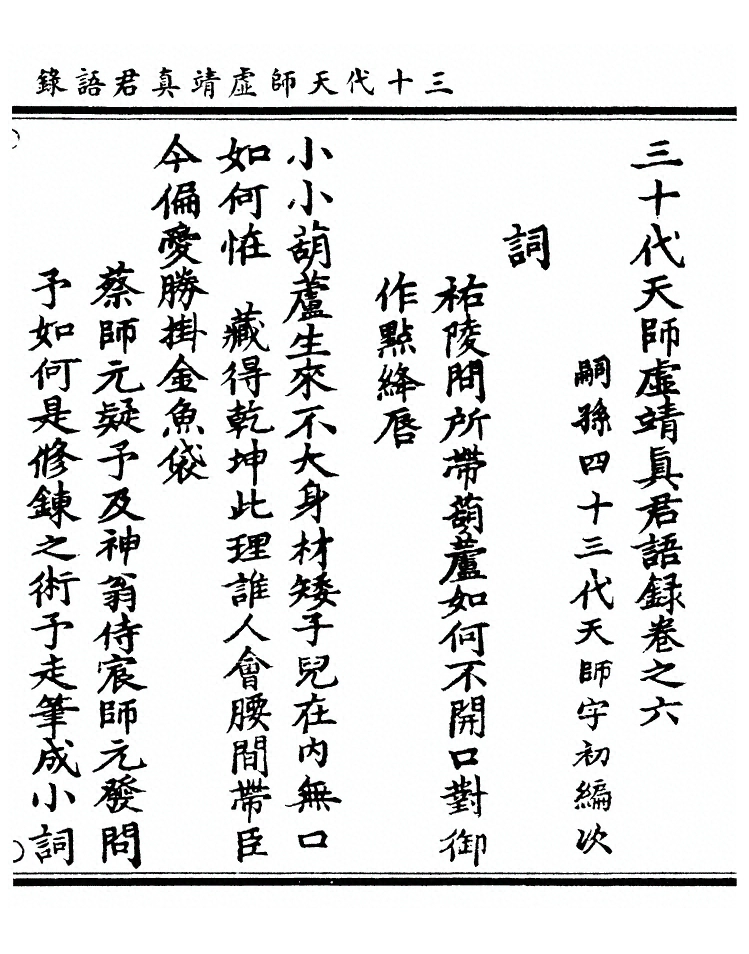 三十代天師虛靖真君語錄
三十代天師虛靖真君語録卷之六
嗣孫四十三代天師宇初編次
詞
祐陵問所帶葫蘆如何不開口對御
作點絳唇
小小葫蘆生來不大身材矮子兒在内無口
如何恠　藏得乾坤此理誰人會腰間帶臣
今偏愛勝掛金魚袋
蔡師元疑予及神翁侍宸師元發問
予如何是修鍊之術予走筆成小詞